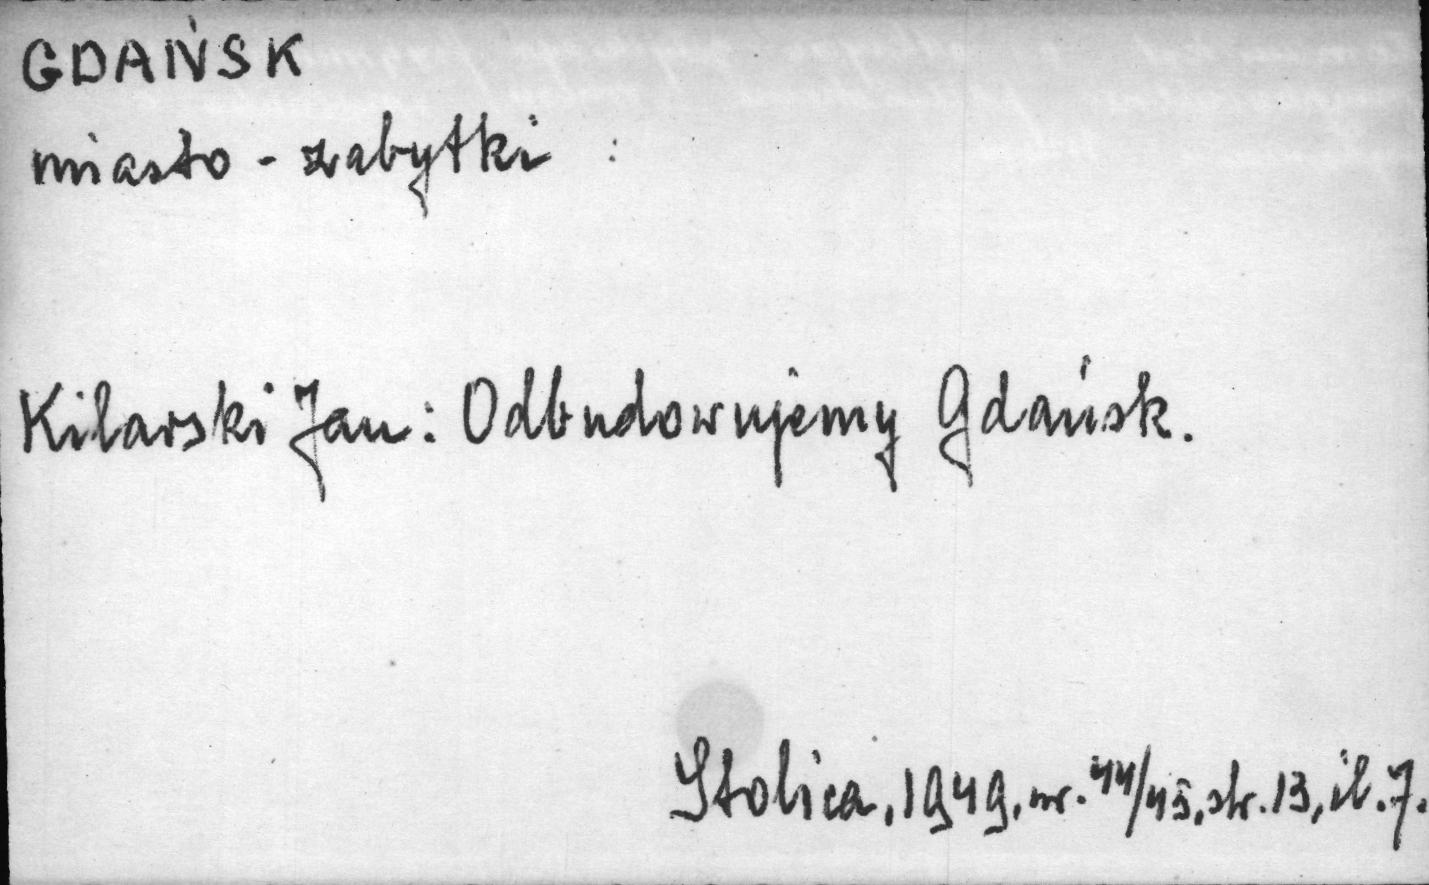 GDAŃSK
miasto - zabytki :
Kilarski Jan: Odbudowujemy Gdańsk.
Stolica, 1949, nr. 44/45, str. 13, il. 7.